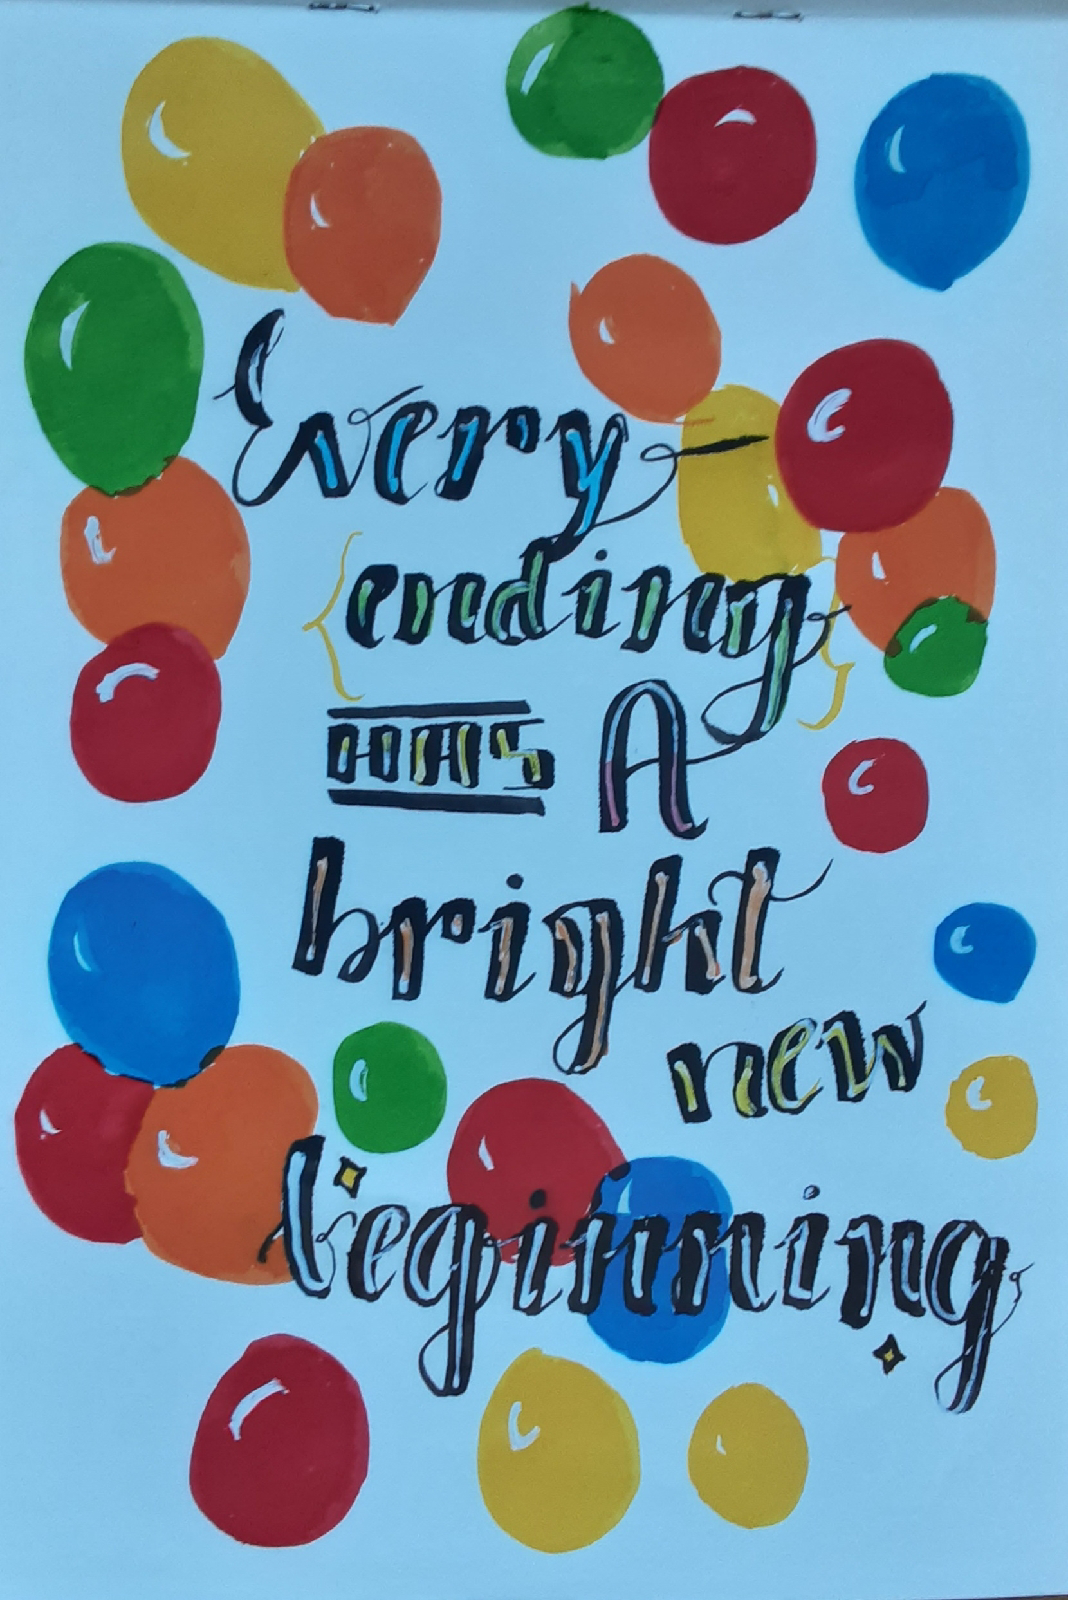 Every
ending
HAS A
bright
new
beginning